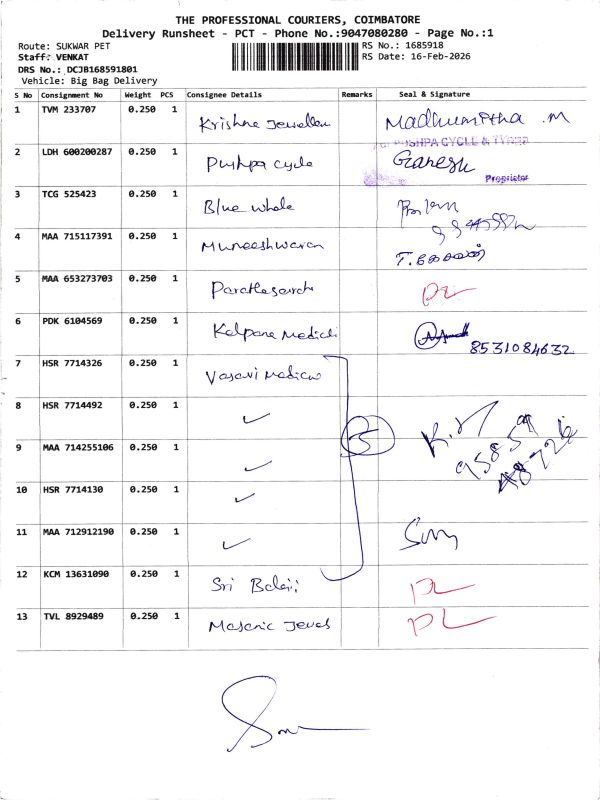 THE PROFESSIONAL COURIERS, COIMBATORE
Delivery Runsheet - PCT - Phone No.:9047080280 - Page No.:1
Route: SUKWAR PET
Staff: VENKAT
DRS No.: DCJB168591801
Vehicle: Big Bag Delivery
RS No.: 1685918
RS Date: 16-Feb-2026
S No Consignment No Weight PCS Consignee Details Remarks Seal & Signature
1 TVM 233707 0.250 1 Krishna Jewellers Madhumitha .M
2 LDH 600200287 0.250 1 Pushpa cycle Ganesh
PUSHPA CYCLE & TYRES
Proprietor
3 TCG 525423 0.250 1 Blue whale
4 MAA 715117391 0.250 1 Muneeshwaran
5 MAA 653273703 0.250 1 Parathasarathi
6 PDK 6104569 0.250 1 Kalpana Medicals
8531084632
7 HSR 7714326 0.250 1 Vasavi Medicals
8 HSR 7714492 0.250 1 ✓
5
9 MAA 714255106 0.250 1 ✓
10 HSR 7714130 0.250 1 ✓
11 MAA 712912190 0.250 1 ✓
12 KCM 13631090 0.250 1 Sri Balaji
13 TVL 8929489 0.250 1